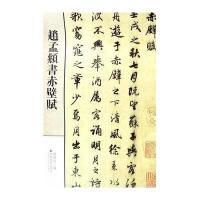 趙孟頫書赤壁賦
赤壁賦
壬戌之秋七月既望蘇子與
遊于赤壁之下清風徐来水
不興舉酒屬客誦明月之詩
歌窈窕之章少焉月出于東山